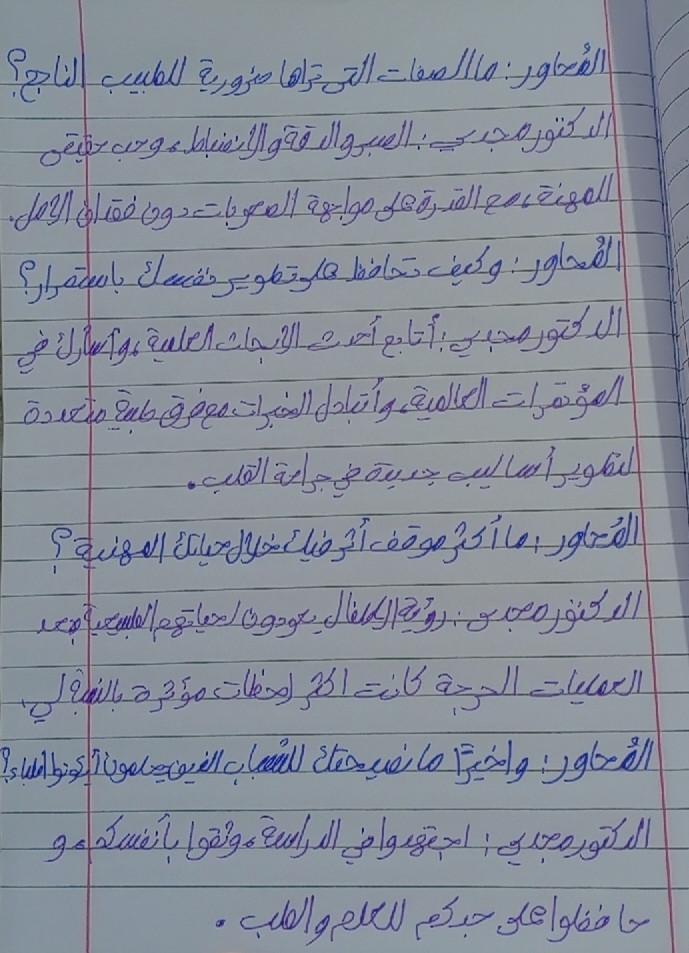 المُحاور: ما الصفات التي تراها ضرورية للطبيب الناجح؟
الدكتور مجدي: الصبر والدقة والانضباط، وحب حقيقي
للمهنة، مع القدرة على مواجهة الصعوبات دون فقدان الأمل.
المُحاور: وكيف تحافظ على تطوير نفسك باستمرار؟
الدكتور مجدي: أتابع أحدث الأبحاث العلمية، وأشارك في
المؤتمرات العالمية، وأتبادل الخبرات مع فرق طبية متعددة
لتطوير أساليب جديدة في جراحة القلب.
المُحاور: ما أكثر موقف أثر فيك خلال حياتك المهنية؟
الدكتور مجدي: رؤية الأطفال يعودون لحياتهم الطبيعية بعد
العمليات الحرجة كانت اكثر لحظات مؤثرة بالنسبة لي.
المُحاور: واخيرًا ما نصيحتك للشباب الذين يحلمون أن يكونوا أطباء؟
الدكتور مجدي: اجتهدوا في الدراسة، وثقوا بأنفسكم، و
حافظوا على حبكم للعلم والطب.